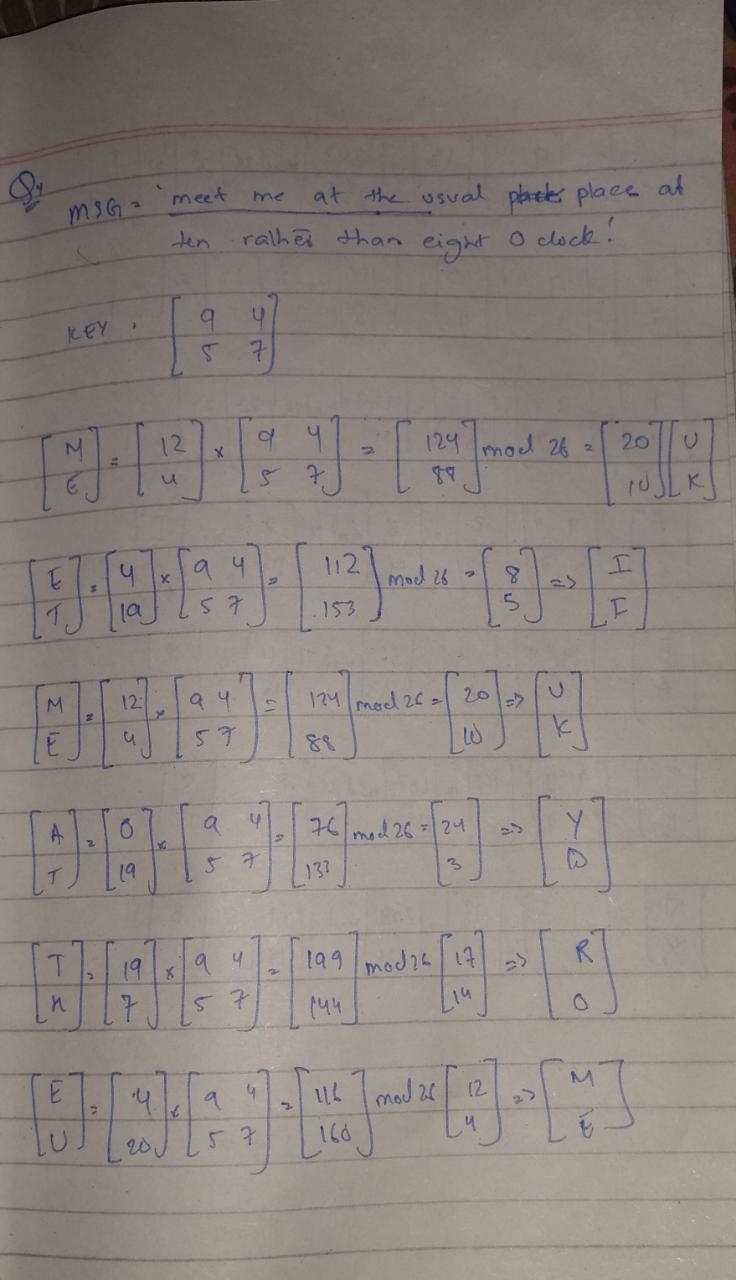 Q1
MSG = "meet me at the usual place at
ten rather than eight O clock!
KEY . [9 4
5 7]
[M
E] = [12
4] x [9 4
5 7] = [124
88] mod 26 = [20
10] [U
K]
[E
T] = [4
19] x [9 4
5 7] = [112
153] mod 26 = [8
5] => [I
F]
[M
E] = [12
4] x [9 4
5 7] = [124
88] mod 26 = [20
10] => [U
K]
[A
T] = [0
19] x [9 4
5 7] = [76
133] mod 26 = [24
3] => [Y
D]
[T
H] = [19
7] x [9 4
5 7] = [199
144] mod 26 [17
14] => [R
O]
[E
U] = [4
20] x [9 4
5 7] = [116
160] mod 26 [12
4] => [M
E]